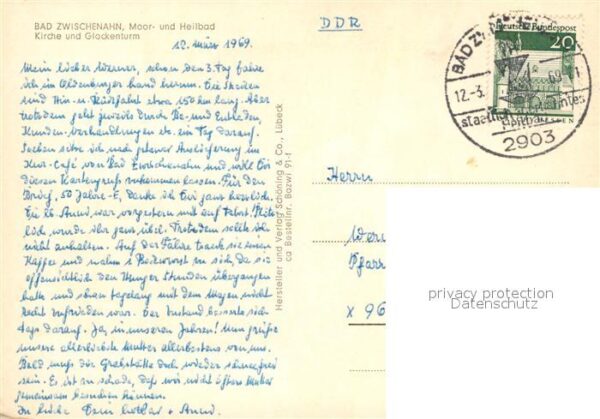 BAD ZWISCHENAHN, Moor- und Heilbad
Kirche und Glockenturm
DDR
12. März 1969.
Mein lieber Werner, schon den 3. Tag fahre
ich im Oldenburger Land herum. Die Strecken
sind Hin- u. Rückfahrt etwa 150 km lang. Aber
trotzdem geht jeweils durch Be- und Entladen,
Kunden-Verhandlungen etc. ein Tag darauf.
Soeben sitze ich nach getaner Auslieferung im
Kur-Café von Bad Zwischenahn und will Dir
diesen Kartengruß zukommen lassen. Für den
Brief, 50 Jahre-E, danke ich Dir ganz herzlich.
Anni war vorgestern mit auf Fahrt. Plötz-
lich wurde ihr ganz übel. Trotzdem sollte ich
nicht anhalten. Auf der Fähre trank sie einen
Kaffee und nahm 1 Bockwurst zu sich, da sie
offensichtlich den Hunger Stunden übergangen
hatte und schon tagelang mit dem Magen nicht
recht zufrieden war. Der Zustand besserte sich
tags darauf. Ja, in unseren Jahren! Nun grüße
unsere allerliebste Mutter allerbestens von uns.
Bald muß die Grabstätte doch wieder schneefrei
sein. Es ist zu schade, daß wir nicht öfters Mutter
gemeinsam besuchen können.
In Liebe Dein Lothar + Anni.
Hersteller und Verlag Schöning & Co., Lübeck
ca Bestellnr. Bazwi 91-f
Deutsche Bundespost
20
BAD
12.-3. 69-1
staatlich
2903
Herrn
Wern
Pfarr
X 96
privacy protection
Datenschutz